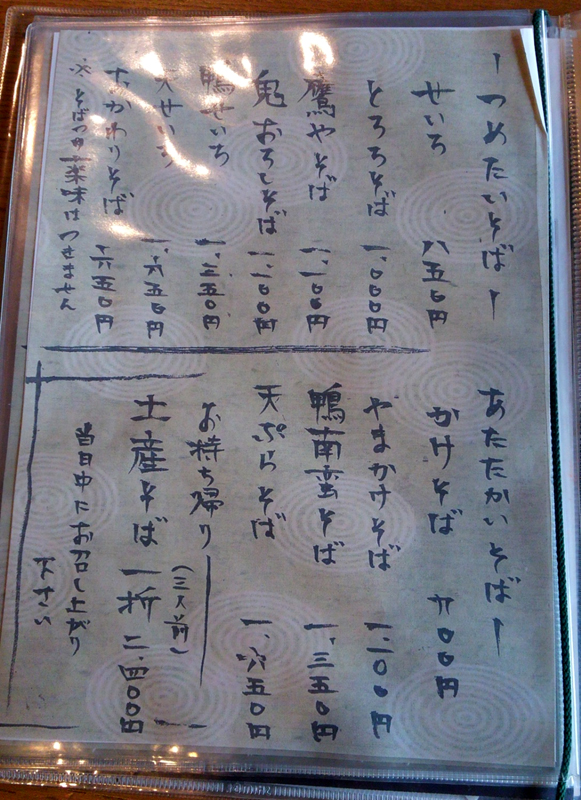 ーつめたいそばー
せいろ 八五〇円
とろろそば 一、〇〇〇円
鷹やそば 一、一〇〇円
鬼おろしそば 一、一〇〇円
鴨せいろ 一、三五〇円
天せいろ 一、六五〇円
おかわりそば 六五〇円
※そばつゆ薬味はつきません
あたたかいそばー
かけそば 九〇〇円
やまかけそば 一、一〇〇円
鴨南蛮そば 一、三五〇円
天ぷらそば 一、六五〇円
お持ち帰り
土産そば 一折 (三人前) 二、四〇〇円
当日中にお召し上がり
下さい